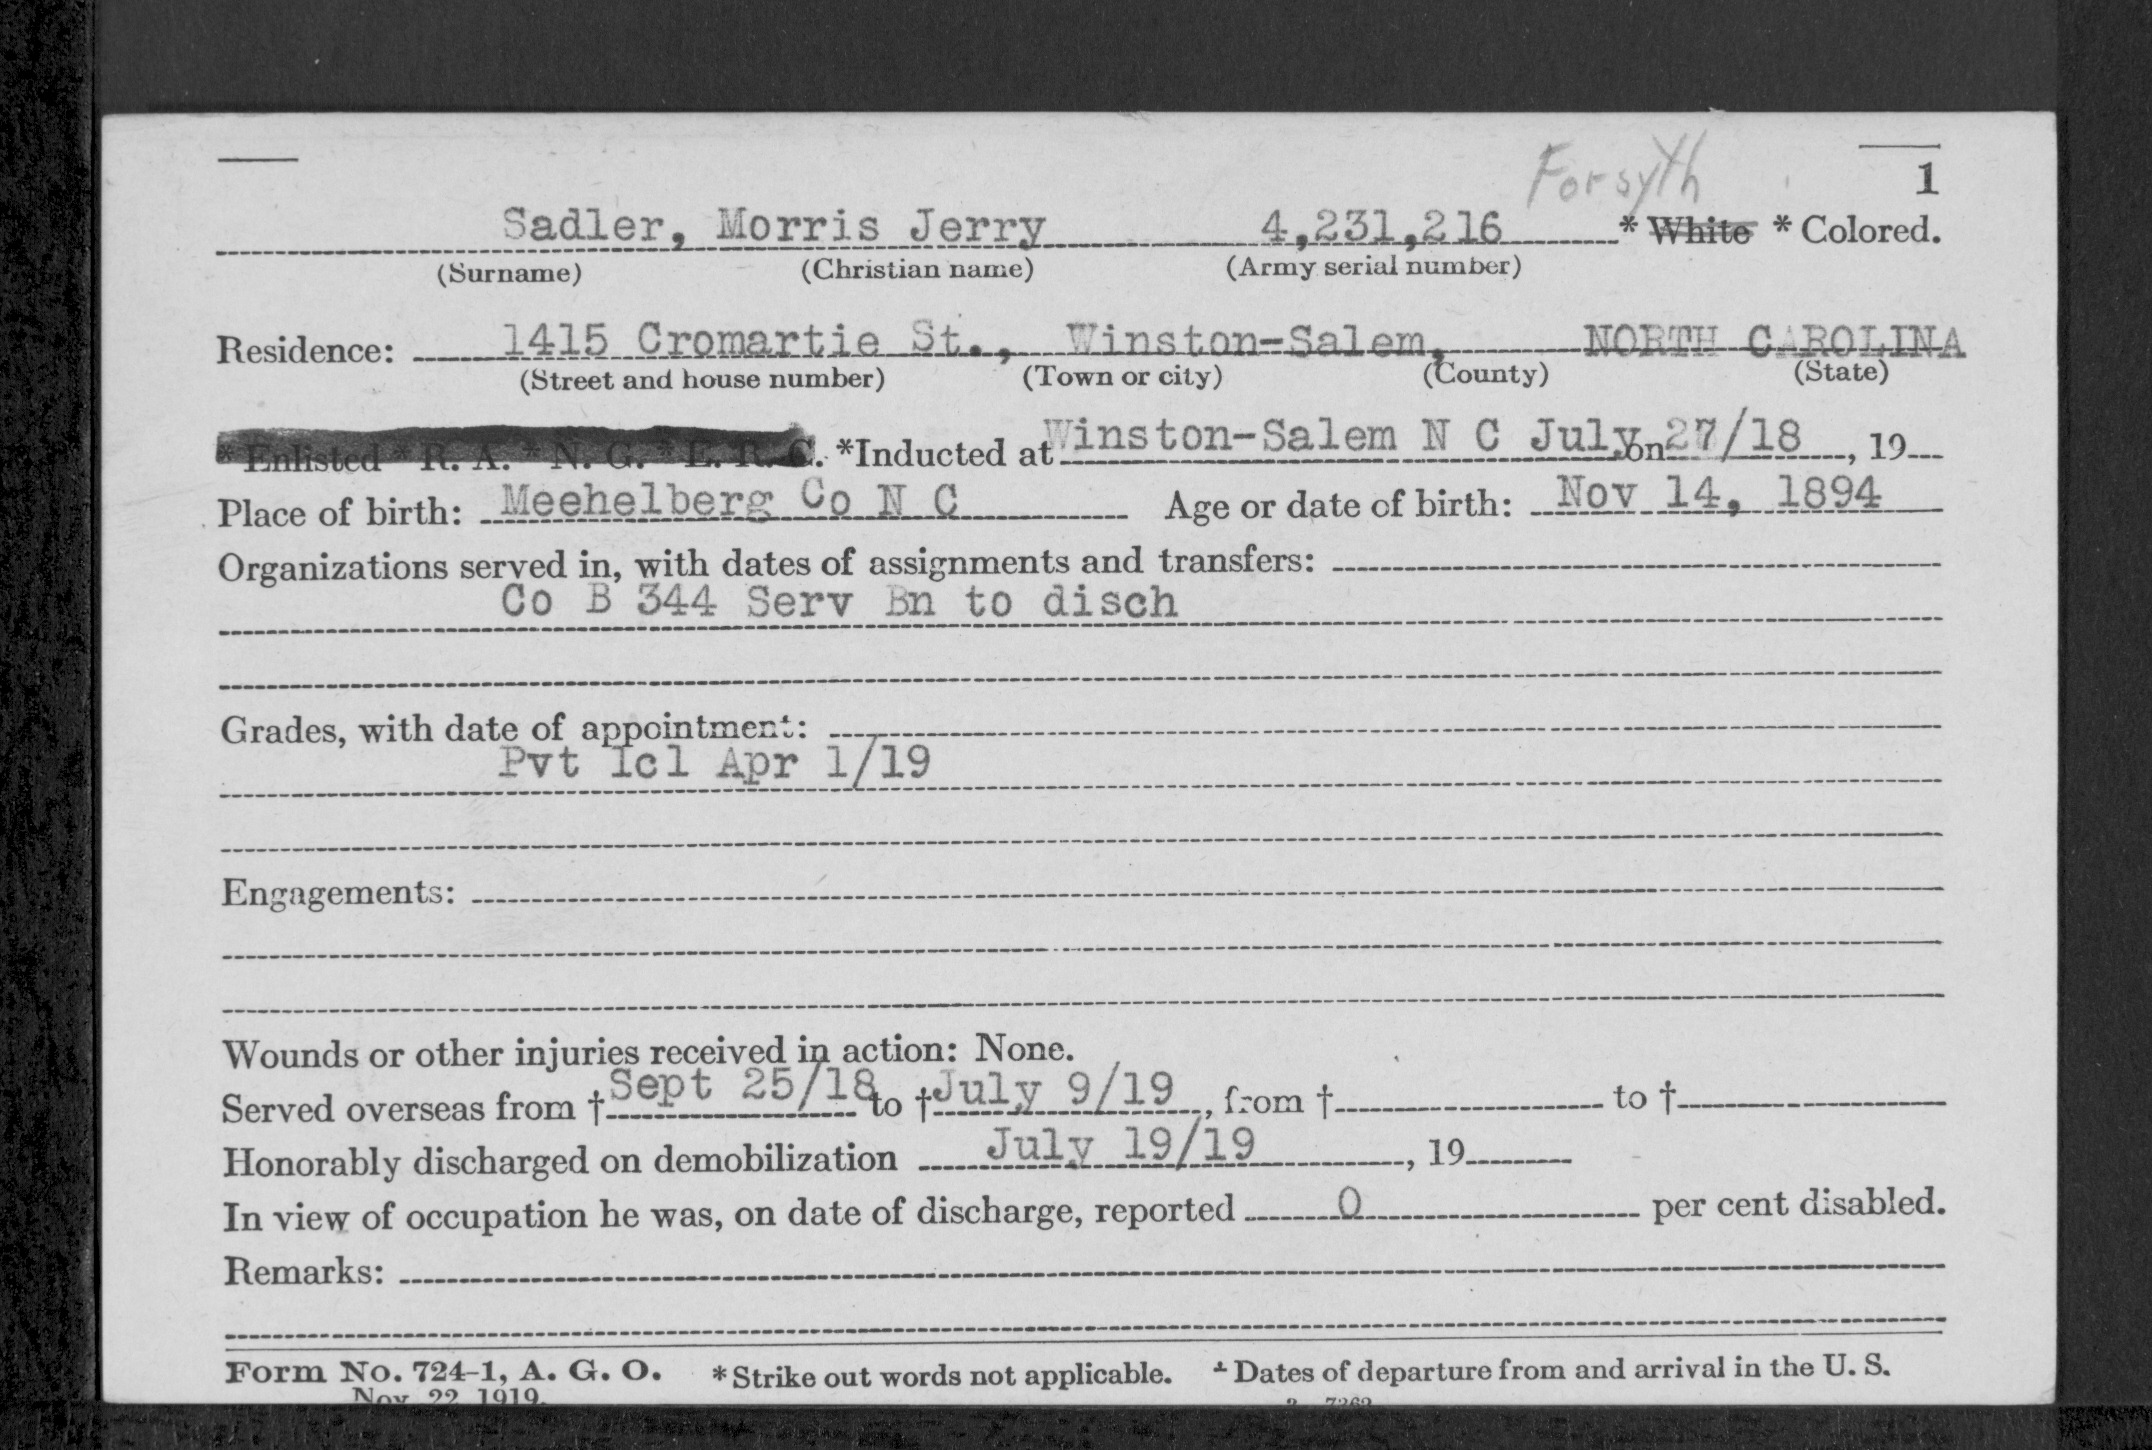 Forsyth
1
Sadler, Morris Jerry 4,231,216 * White * Colored.
(Surname) (Christian name) (Army serial number)
Residence: 1415 Cromartie St., Winston-Salem, NORTH CAROLINA
(Street and house number) (Town or city) (County) (State)
* Enlisted * R. A. * N. G. * E. R. C. *Inducted at Winston-Salem N C July on 27/18, 19
Place of birth: Meehelberg Co N C Age or date of birth: Nov 14, 1894
Organizations served in, with dates of assignments and transfers:
Co B 344 Serv Bn to disch
Grades, with date of appointment:
Pvt 1cl Apr 1/19
Engagements:
Wounds or other injuries received in action: None.
Served overseas from † Sept 25/18 to † July 9/19, from † to †
Honorably discharged on demobilization July 19/19, 19
In view of occupation he was, on date of discharge, reported 0 per cent disabled.
Remarks:
Form No. 724-1, A. G. O. * Strike out words not applicable. † Dates of departure from and arrival in the U. S.
Nov. 22, 1919.